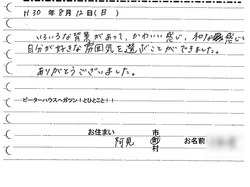 H30年8月12日(日)
いろいろな背景があって、かわいい感じ、和な感じ
自分が好きな雰囲気を選ぶことができました。
ありがとうございました。
ピーターハウスへガツン！とひとこと！！
お住まい 阿見 市町村 お名前